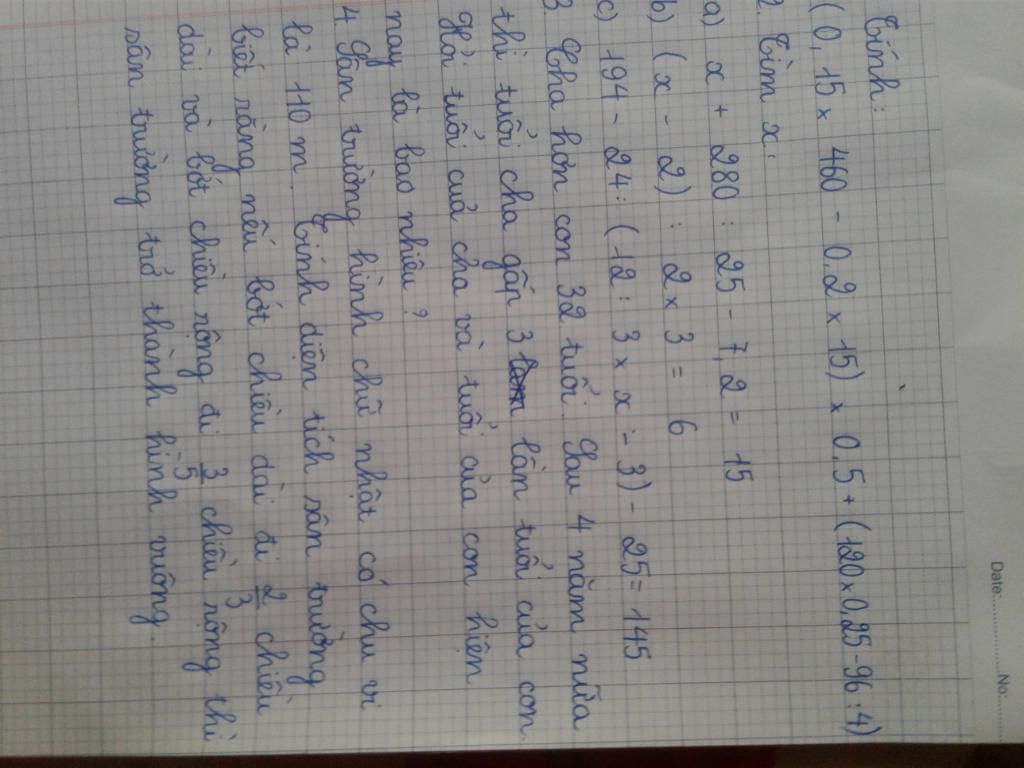 Date: No:
Tính:
( 0,15 x 460 - 0,2 x 15) x 0,5 + (120x0,25-96:4)
2. Tìm x:
a) x + 280 : 25 - 7,2 = 15
b) ( x - 2) : 2 x 3 = 6
c) 194 - 24 : (12 : 3 x x : - 3) - 25 = 145
3. Cha hơn con 32 tuổi. Sau 4 năm nữa
thì tuổi cha gấp 3 lần tuổi của con
Hỏi tuổi của cha và tuổi của con hiện
nay là bao nhiêu?
4 Sân trường hình chữ nhật có chu vi
là 110 m. Tính diện tích sân trường
biết rằng nếu bớt chiều dài đi 2/3 chiều
dài và bớt chiều rộng đi 3/5 chiều rộng thì
sân trường trở thành hình vuông.